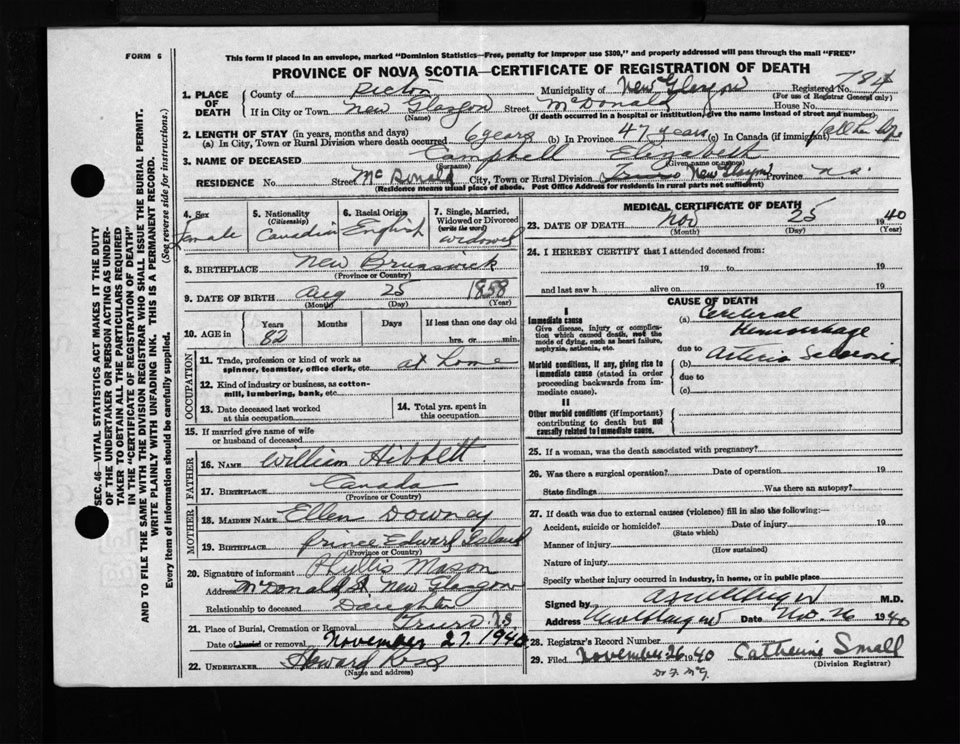 FORM 6
This form if placed in an envelope, marked "Dominion Statistics—Free, penalty for improper use $300," and properly addressed will pass through the mail "FREE"
PROVINCE OF NOVA SCOTIA—CERTIFICATE OF REGISTRATION OF DEATH
SEC. 46—VITAL STATISTICS ACT MAKES IT THE DUTY
OF THE UNDERTAKER OR PERSON ACTING AS UNDER-
TAKER TO OBTAIN ALL THE PARTICULARS REQUIRED
IN THE "CERTIFICATE OF REGISTRATION OF DEATH"
AND TO FILE THE SAME WITH THE DIVISION REGISTRAR WHO SHALL ISSUE THE BURIAL PERMIT.
WRITE PLAINLY WITH UNFADING INK. THIS IS A PERMANENT RECORD.
Every item of information should be carefully supplied. (See reverse side for instructions.)
1. PLACE OF DEATH County of Pictou Municipality of New Glasgow Registered No.
(For use of Registrar General only)
If in City or Town New Glasgow Street McDonald House No.
(Name) (If death occurred in a hospital or institution, give its name instead of street and number)
2. LENGTH OF STAY (in years, months and days)
(a) In City, Town or Rural Division where death occurred 6 years (b) In Province 47 years (c) In Canada (if immigrant) all her life
3. NAME OF DECEASED Campbell Elizabeth
(Surname) (Given name or names)
RESIDENCE No. Street McDonald City, Town or Rural Division New Glasgow Province N.S.
(Residence means usual place of abode. Post Office Address for residents in rural parts not sufficient)
4. Sex
Female
5. Nationality
(Citizenship)
Canadian
6. Racial Origin
English
7. Single, Married,
Widowed or Divorced
(write the word)
widowed
8. BIRTHPLACE New Brunswick
(Province or Country)
9. DATE OF BIRTH Aug 25 1858
(Month) (Day) (Year)
10. AGE in Years Months Days If less than one day old
82 hrs. or min.
OCCUPATION
11. Trade, profession or kind of work as
spinner, teamster, office clerk, etc. at home
12. Kind of industry or business, as cotton-
mill, lumbering, bank, etc.
13. Date deceased last worked
at this occupation
14. Total yrs. spent in
this occupation
15. If married give name of wife
or husband of deceased
FATHER
16. NAME William Hibbett
17. BIRTHPLACE Canada
(Province or Country)
MOTHER
18. MAIDEN NAME Ellen Downey
19. BIRTHPLACE Prince Edward Island
(Province or Country)
20. Signature of informant Phyllis Mason
Address McDonald St. New Glasgow
Relationship to deceased Daughter
21. Place of Burial, Cremation or Removal Truro NS
Date of burial or removal November 27. 1940
22. UNDERTAKER Howard Ross
(Name and address)
MEDICAL CERTIFICATE OF DEATH
23. DATE OF DEATH Nov 25 1940
(Month) (Day) (Year)
24. I HEREBY CERTIFY that I attended deceased from:
19 to 19
and last saw h alive on 19
CAUSE OF DEATH
I
Immediate cause (a) Cerebral
Give disease, injury or complica-
tion which caused death, not the
mode of dying, such as heart failure,
asphyxia, asthenia, etc.
Hemorrhage
due to
Morbid conditions, if any, giving rise to
immediate cause (stated in order
proceeding backwards from im-
mediate cause).
(b) Arterio Sclerosis
due to
(c)
II
Other morbid conditions (if important)
contributing to death but not
causally related to immediate cause.
25. If a woman, was the death associated with pregnancy?
26. Was there a surgical operation? Date of operation 19
State findings Was there an autopsy?
27. If death was due to external causes (violence) fill in also the following:—
Accident, suicide or homicide? Date of injury 19
(State which)
Manner of injury
(How sustained)
Nature of injury
Specify whether injury occurred in industry, in home, or in public place
Signed by M.D.
Address New Glasgow Date Nov. 26 1940
28. Registrar's Record Number
29. Filed November 26 1940 Catherine Small
(Division Registrar)